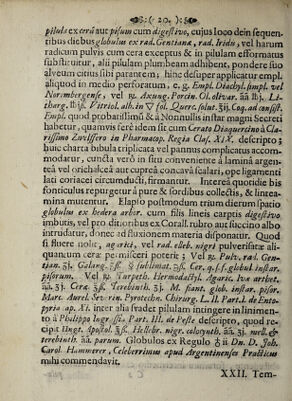 ( 20. )
pilula ex cerâ aut pisum cum digestivo, cujus loco dein sequen-
tibus diebus globulus ex rad. Gentianæ, rad. Iridis, vel harum
radicum pulvis cum cera exceptus & in pilulam efformatus
substituitur, alii pilulam plumbeam adhibent, pondere suo
alveum citius sibi parantem; hinc desuper applicatur empl.
aliquod in medio perforatum, e. g. Empl. Diachyl. simpl. vel
Norimbergense, vel ℞. Axung. Porcin. Ol. olivar. ãã ℔j. Li-
tharg. ℔jß. Vitriol. alb. in ▽ sol. Querc. solut. ℥ij. Coq. ad consist.
Empl. quod probatissimũ & à Nonnullis instar magni Secreti
habetur, quamvis ferè idem sit cum Cerato Diaquercino à Cla-
rissimo Zwelffero in Pharmacop. Regia Clas. XIX. descripto;
huic charta bibula triplicata vel pannus complicatus accom-
modatur, cuncta verò in situ conveniente à lamina argen-
tea vel orichalcea aut cuprea concavâ scalari, ope ligamenti
lati coriacei circumducti, firmantur. Interea quotidie bis
fonticulus repurgetur à pure & sordibus collectis, & lintea-
mina mutentur. Elapso postmodum trium dierum spatio
globulus ex hedera arbor. cum filis lineis carptis digestivo
imbutis, vel pro ditioribus ex Corall. rubro aut succino albo
intrudatur, donec ad fluxionem materia disponatur. Quod
si fluere nolit, agarici, vel rad. elleb. nigri pulverisatæ ali-
quantum ceræ permisceri poterit; Vel ℞. Pulv. rad. Gen-
tian. ʒj. Galang. ʒß ☿ sublimat. ʒß. Cer. q. s. f. globul. instar
pisorum. Vel ℞. Turpeth. Hermodactyl. Agaric. Iva arthet.
ãã. ʒj. Ceræ ℥ß. Terebinth. ʒj. M. fiant. glob. instar. pisor.
Marc. Aurel. Severin. Pyrotechn. Chirurg. L. II. Part. I. de Ento-
pyria ap. XI. inter alia suadet pilulam intingere in linimen-
to à Philippo Ingrassia Part. III. de Peste descripto, quod re-
cipit Ungt. Apostol. ʒß. Hellebr. nigr. colocynth. ãã. ℈j. mell. &
terebinth. ãã. parum. Globulos ex Regulo ☿ii Dn. D. Joh.
Carol. Hammerer, Celeberrimus apud Argentinenses Practicus
mihi commendavit.
XXII. Tem-